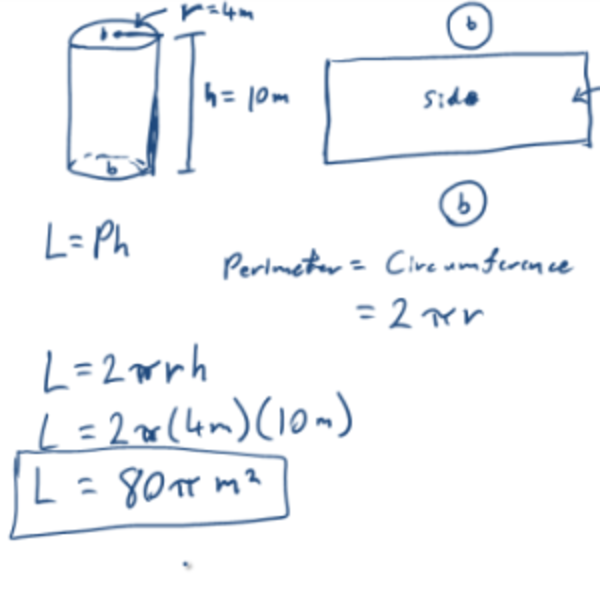 r = 4m
b
h = 10m
b
b
side
b
L = Ph
Perimeter = Circumference
= 2πr
L = 2πrh
L = 2π(4m)(10m)
L = 80π m²